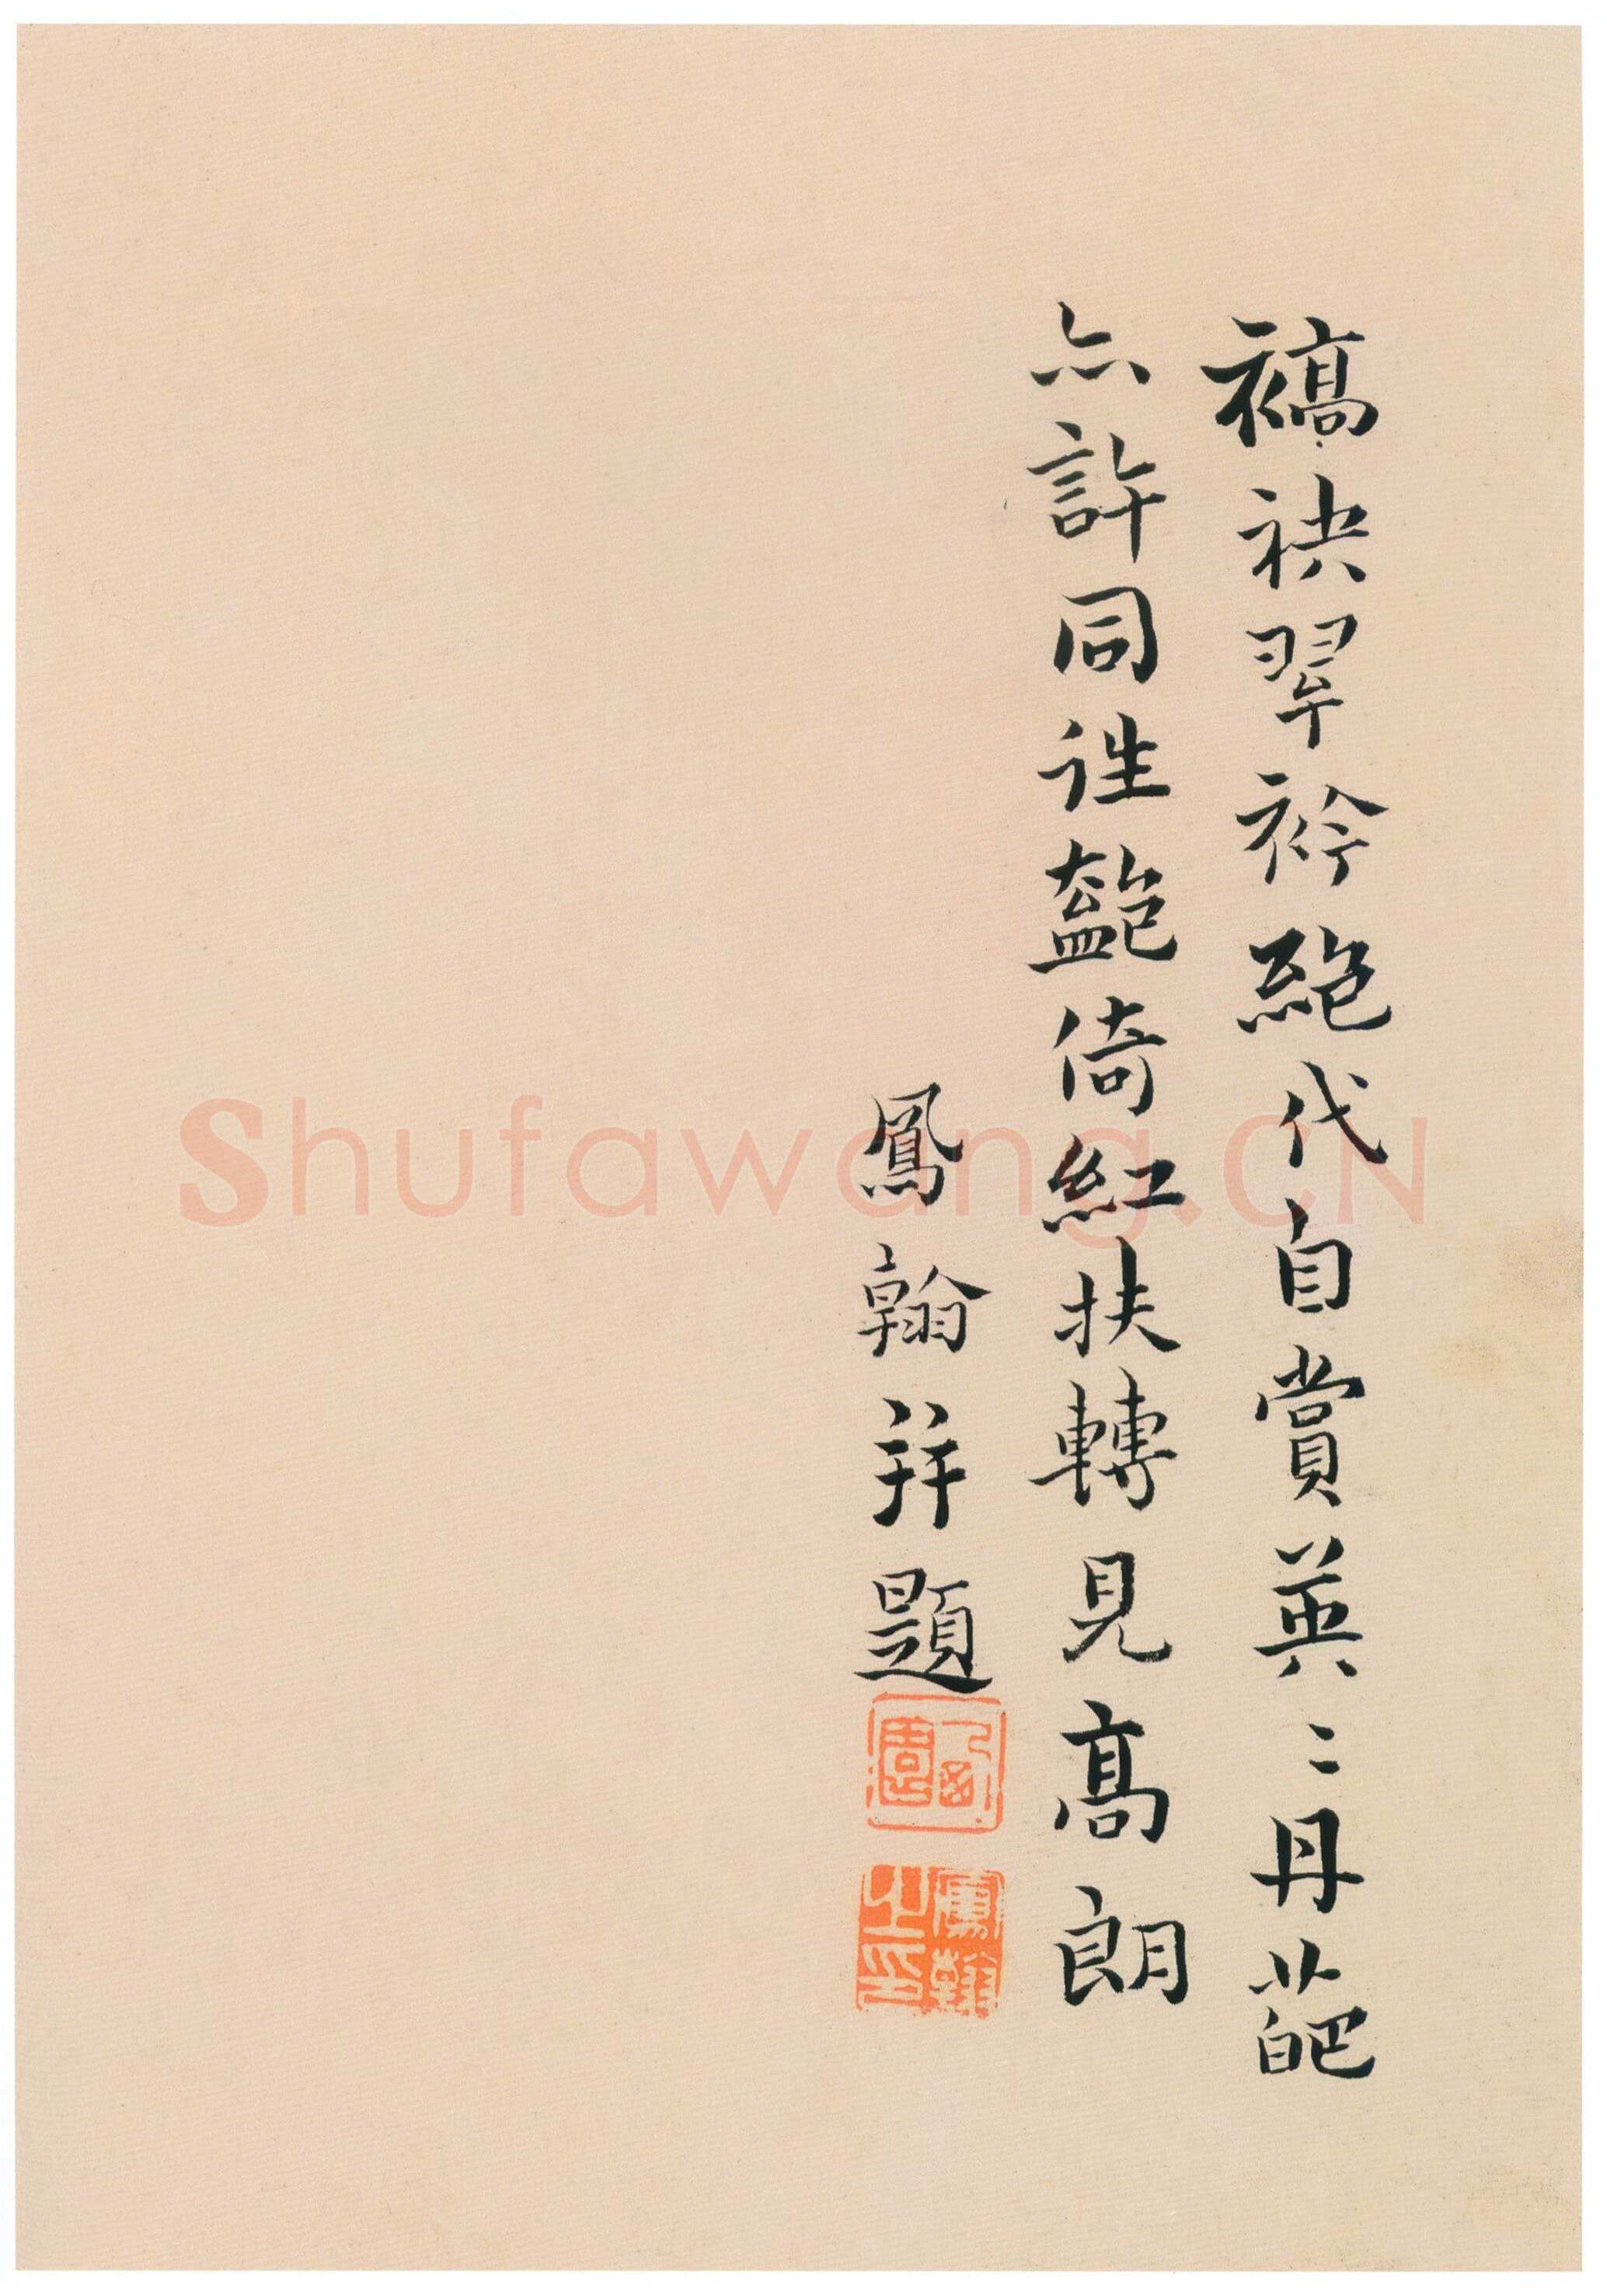 禞袂翠衿絶代自賞英〻丹葩
亦許同徃豔倚紅扶轉見高朗
鳳翰并題
鳳翰之印
Shufawang.CN